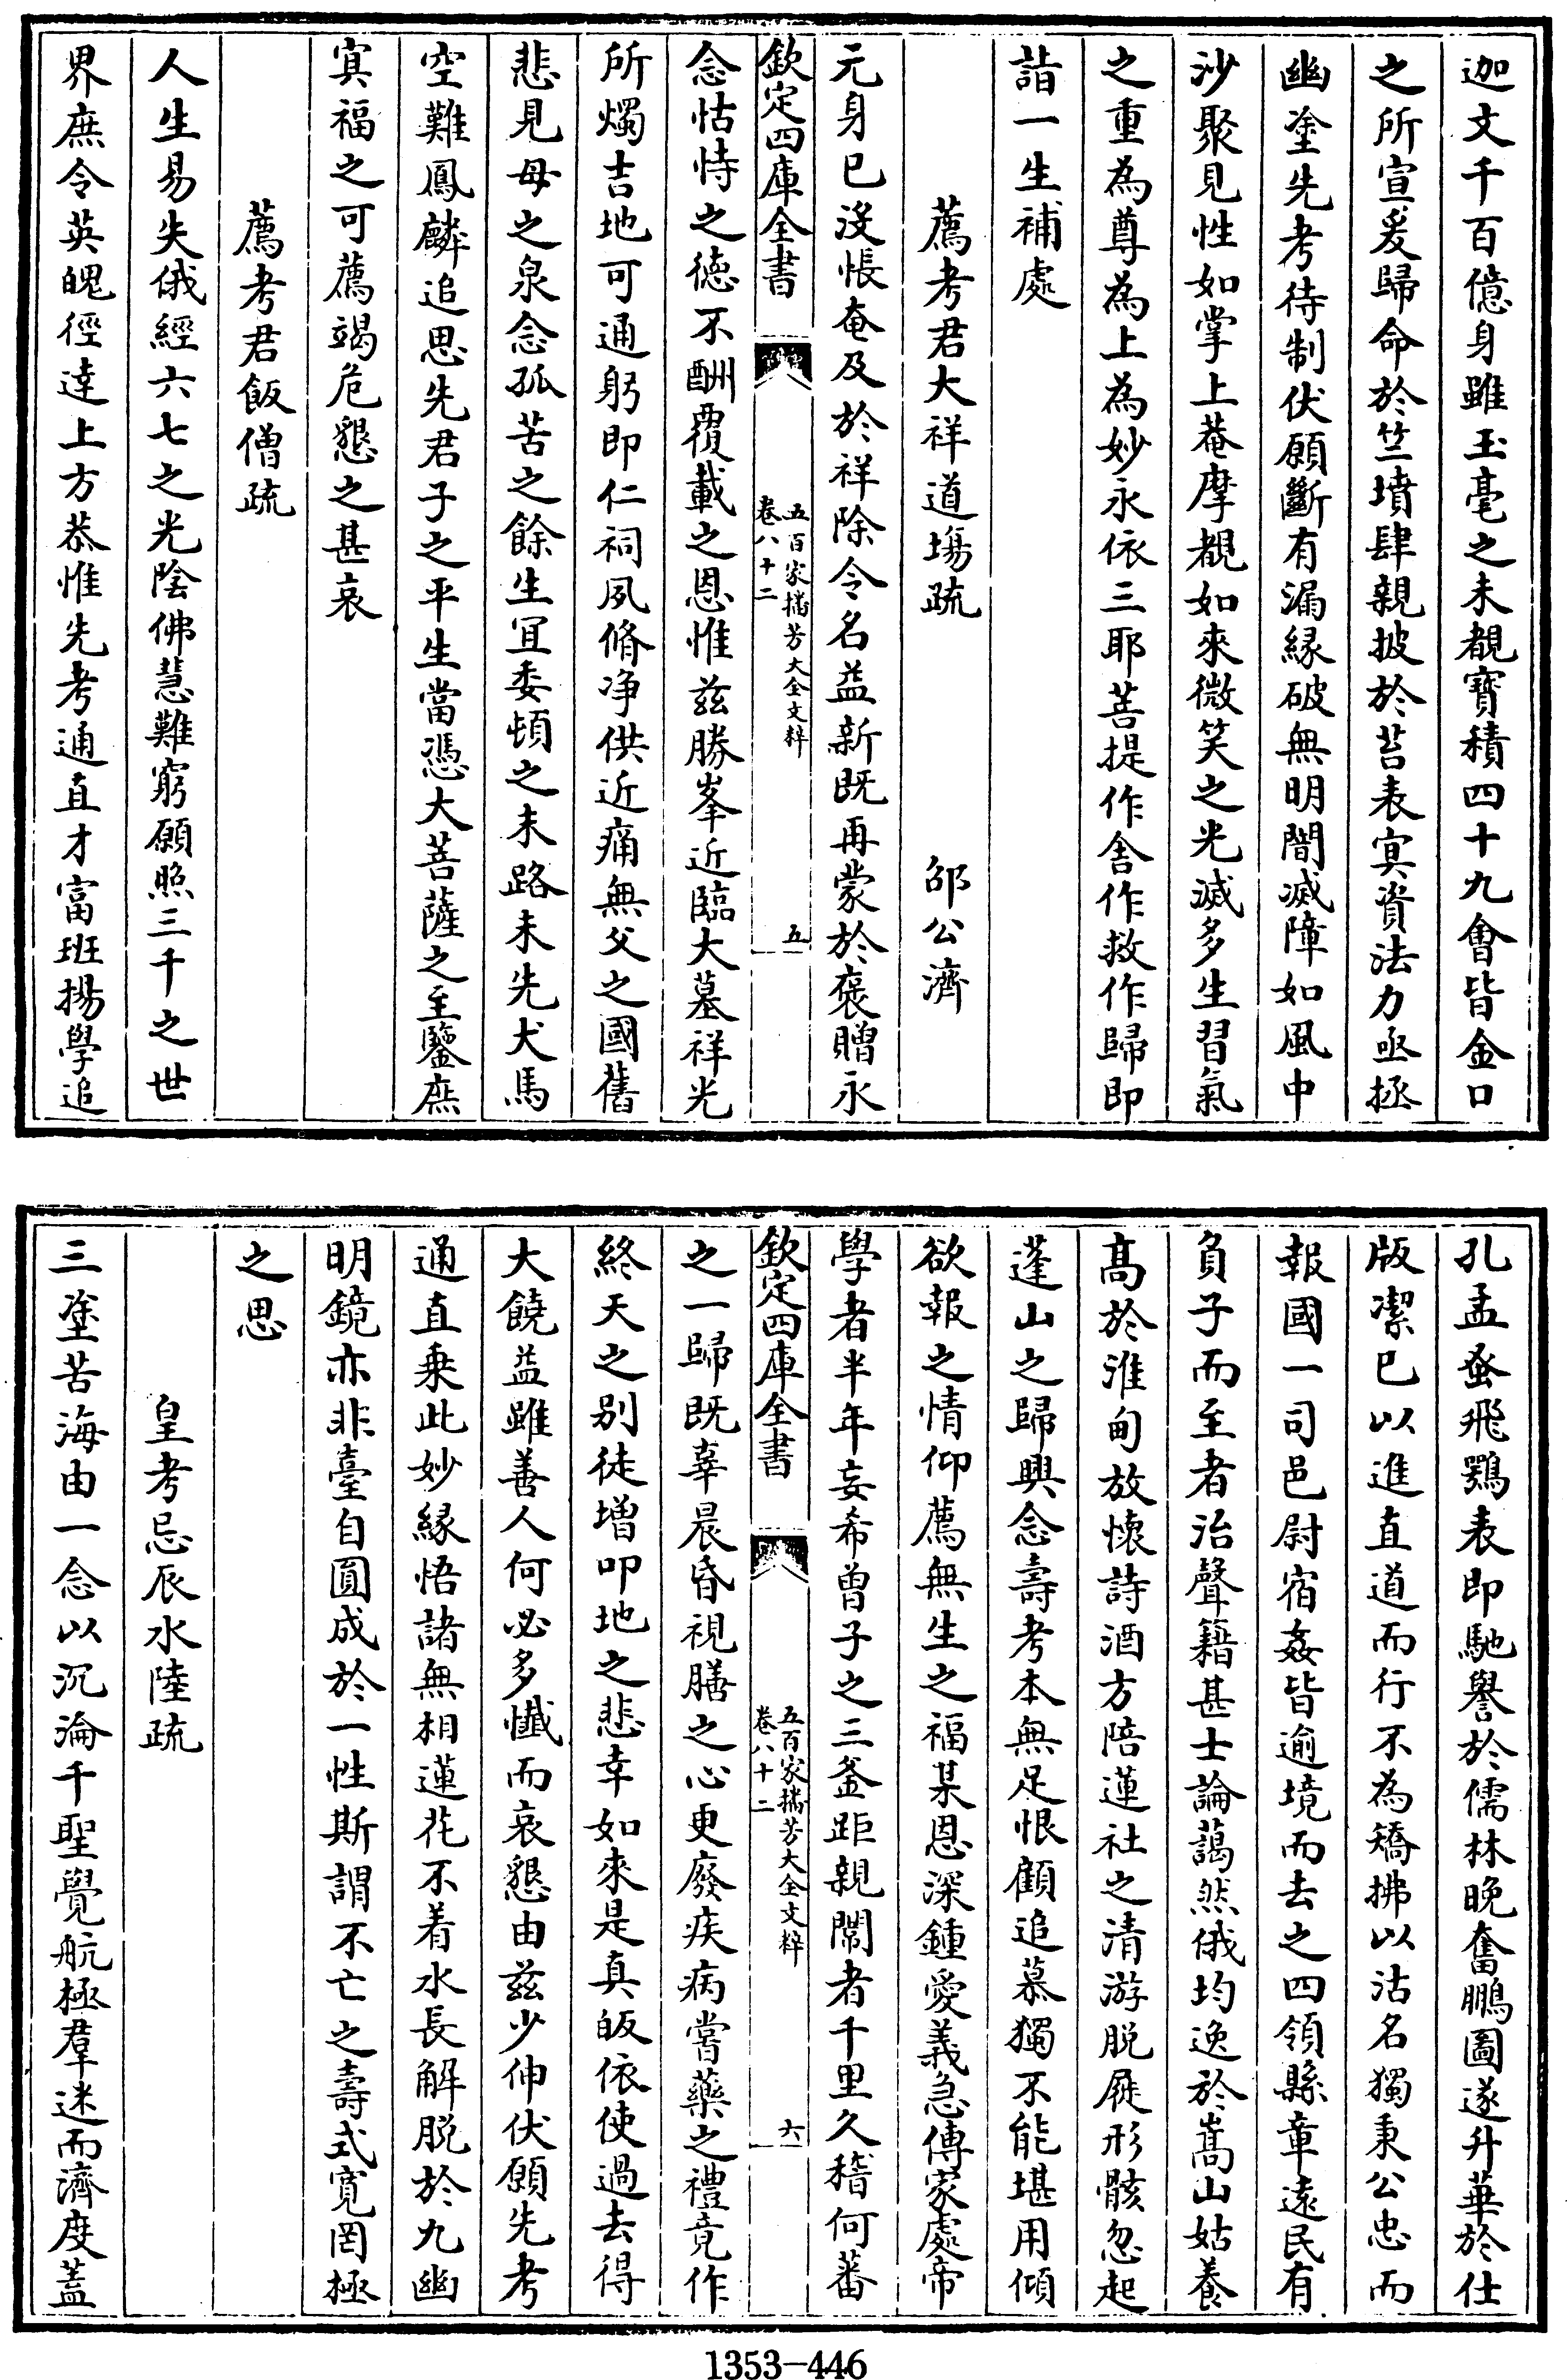 迦文千百億身雖玉毫之未覩寶積四十九會皆金口
之所宣爰歸命於竺墳肆親披於苔表冥資法力亟拯
幽塗先考待制伏願斷有漏縁破無明闇滅障如風中
沙聚見性如掌上菴摩覩如來微笑之光滅多生習氣
之重為尊為上為妙永依三耶菩提作舍作救作歸即
詣一生補處
薦考君大祥道場疏　邵公濟
元身已沒悵奄及於祥除令名益新既再蒙於褒贈永
欽定四庫全書　五百家播芳大全文粹　卷八十二　五
念怙恃之德不酬覆載之恩惟兹勝峯近臨大墓祥光
所燭吉地可通躬即仁祠夙脩净供近痛無父之國舊
悲見母之泉念孤苦之餘生冝委頓之末路未先犬馬
空難鳳麟追思先君子之平生當憑大菩薩之至鑒庶
冥福之可薦竭危懇之甚哀
薦考君飯僧疏
人生易失俄經六七之光陰佛慧難窮願照三千之世
界庶令英魄徑逹上方恭惟先考通直才富班揚學追
孔孟蚤飛鶚表即馳譽於儒林晩奮鵬圖遂升華於仕
版潔已以進直道而行不為矯拂以沽名獨秉公忠而
報國一司邑尉宿姦皆逾境而去之四領縣章逺民有
負子而至者治聲籍甚士論藹然俄均逸於嵩山姑養
髙於淮甸放懐詩酒方陪蓮社之清游脱屣形骸忽起
蓬山之歸興念壽考本無足恨顧追慕獨不能堪用傾
欲報之情仰薦無生之福某恩深鍾愛義急傳家處帝
學者半年妄希曽子之三釜距親闈者千里久稽何蕃
欽定四庫全書　五百家播芳大全文粹　卷八十二　六
之一歸既辜晨昏視膳之心更廢疾病嘗藥之禮竟作
終天之别徒增叩地之悲幸如來是真皈依使過去得
大饒益雖善人何必多懺而哀懇由兹少伸伏願先考
通直乗此妙縁悟諸無相蓮花不着水長解脱於九幽
明鏡亦非臺自圓成於一性斯謂不亡之壽式寛罔極
之思
皇考忌辰水陸疏
三塗苦海由一念以沉淪千聖覺航極羣迷而濟度蓋
1353-446